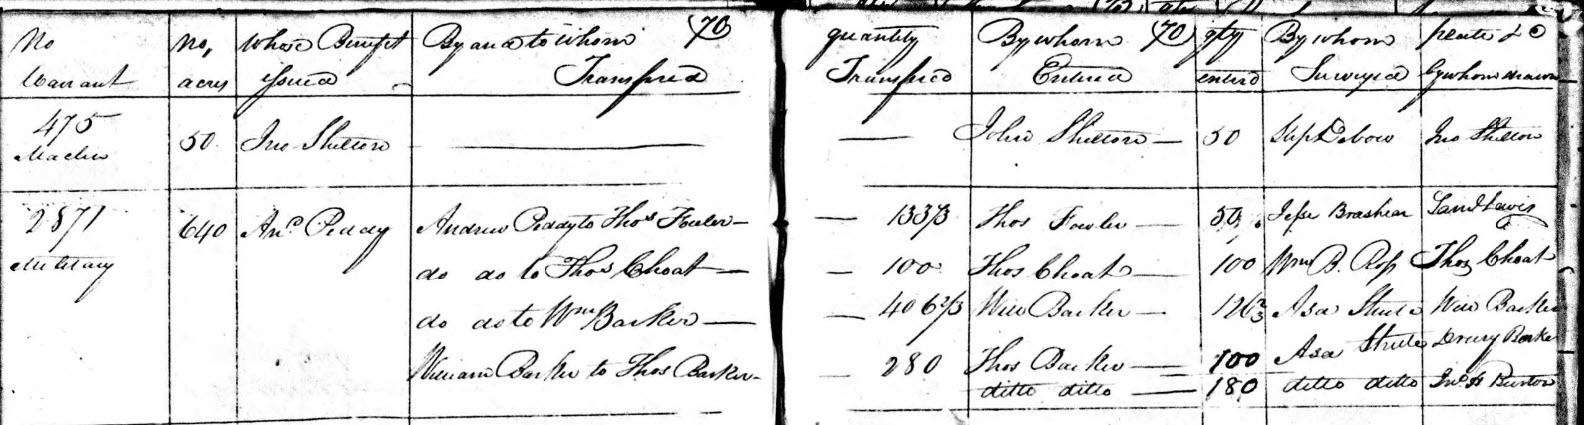 No Warrant no, acres whose Benefit Issued By and to whom Transfred (70) quantity Transfred By whom Entered (70) qty enterd By whom Surveyed by whom drawn
475 50 Jno Shelton — — John Shelton — 50 Jno Shelton
2871 640 And Peddy Andrew Peddy to Thos Fowler — — 133⅓ Thos Fowler — Jesse Brashear Saml Lewis
Military do do to Thos Choat — — 100 Thos Choat — 100 Wm B. Ross Thos Choat
do do to Wm Barker — — 406⅔ Will Barker — 126⅔ Asa Shute Will Barker
William Barker to Thos Barker — — 280 Thos Barker — 100 Asa Shute Drury Barker
ditto ditto — 180 ditto ditto Jno H Burton